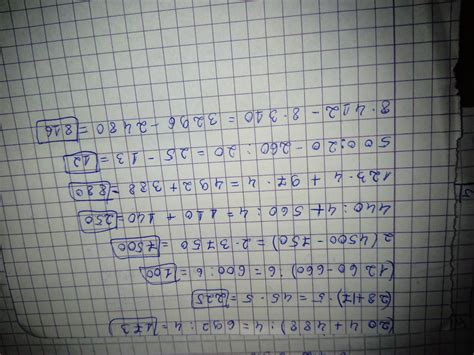 (204 + 488) : 4 = 692 : 4 = 173
(28+17) · 5 = 45 · 5 = 225
(1260 - 660) : 6 = 600 : 6 = 100
2(4500 - 750) = 2 · 3750 = 7500
440 : 4 + 560 : 4 = 110 + 140 = 250
123 · 4 + 97 · 4 = 492 + 388 = 880
500 : 20 - 260 : 20 = 25 - 13 = 12
8 · 412 - 8 · 310 = 3296 - 2480 = 816